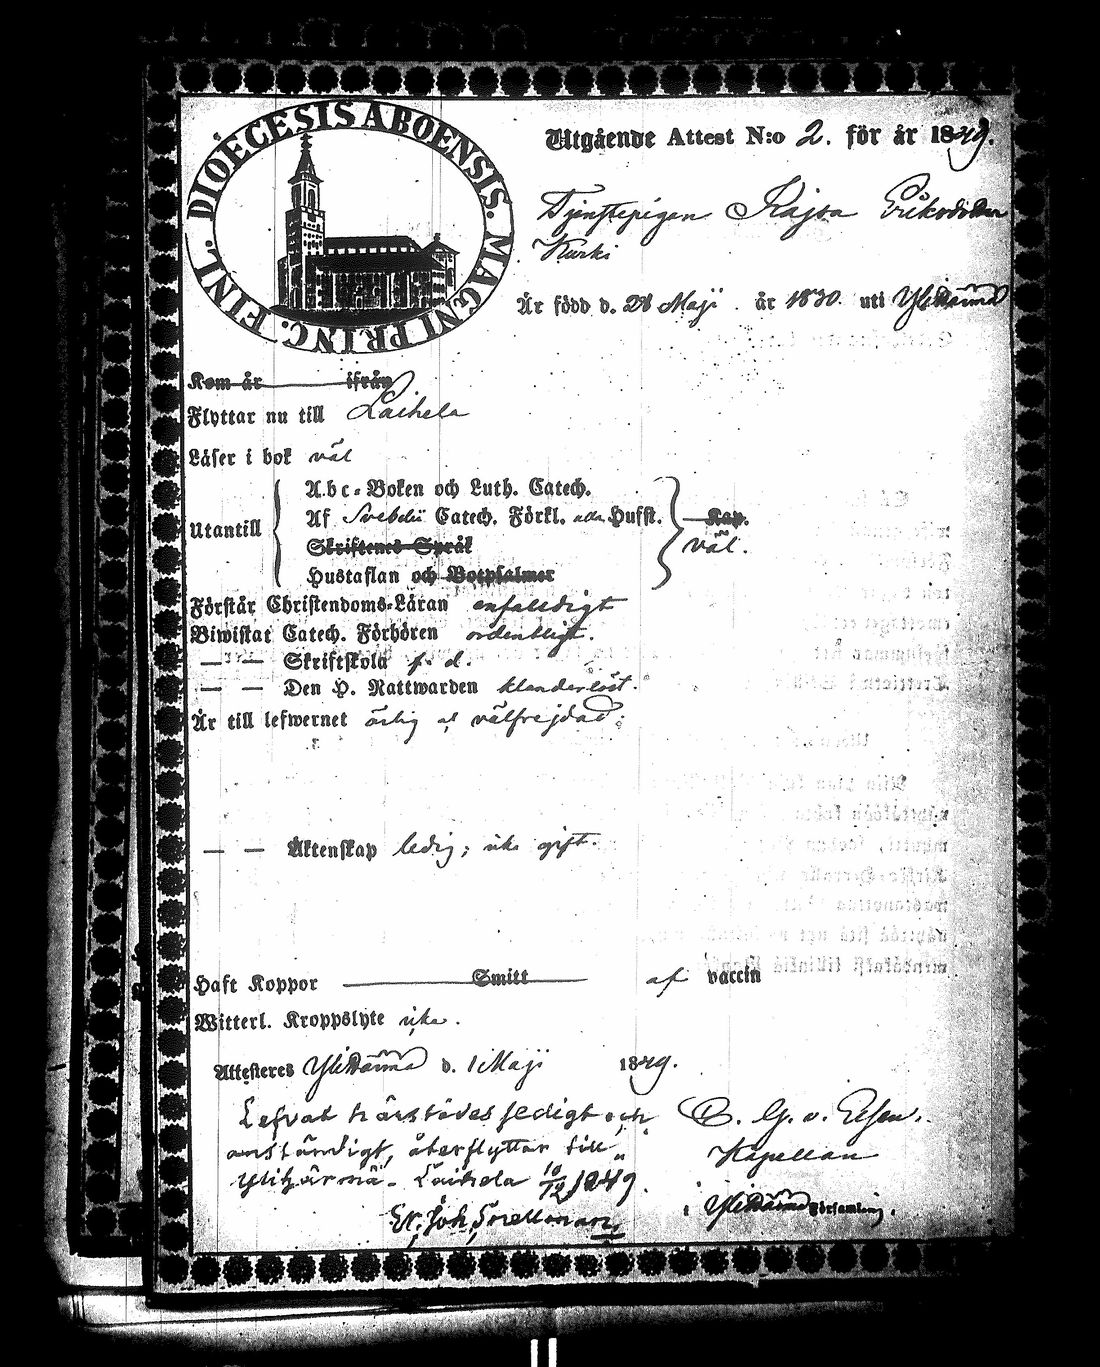 DIOECESIS ABOENSIS. MAGNI PRINC. FINL.
Utgående Attest N:o 2. för år 1849.
Tjenstepigan Kajsa Eriksdotter
Kurki
Är född d. 28 Maji år 1830. uti Ylihärmä
Kom år ifrån
Flyttar nu till Laihela
Läser i bok väl
Utantill
Abc-Boken och Luth. Catech.
Af Svebelii Catech. Förkl. Husst.
Skriftenes Språk
Hustaflan och Botpsalmer
Kap.
väl.
Förstår Christendoms-Läran enfaldigt
Biwistat Catech. Förhören ordentligt.
— — Skriftskola f. d.
— — Den H. Nattwarden klanderlöst.
Är till lefwernet ärlig och välfrejdad;
— — Äktenskap ledig; icke gift
Haft Koppor Smitt af vaccin
Witterl. Kroppslyte icke.
Attesteres Ylihärmä d. 1 Maji 1849.
Lefvat härstädes sedigt och
anständigt, återflyttar till
Ylihärmä. Laihela 10/12 1849.
Joh. Snellman,
C. G. v. Essen.
Kapellan
i Ylihärmä Församling.